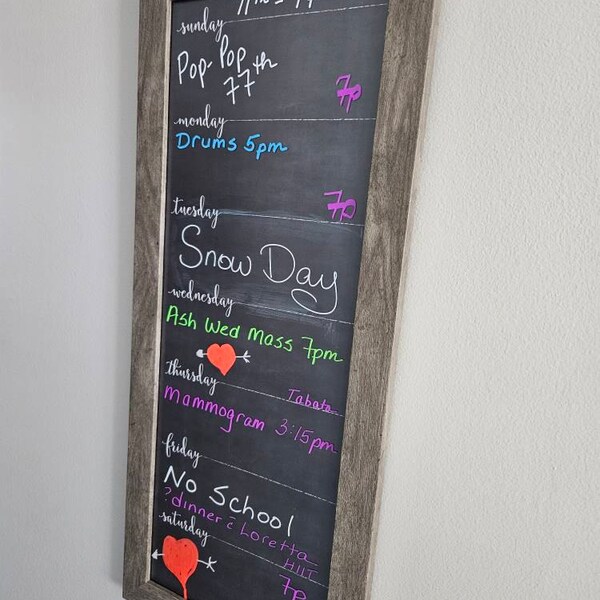 sunday
Pop-Pop
77th
7p
monday
Drums 5pm
7p
tuesday
Snow Day
wednesday
Ash Wed Mass 7pm
thursday
Tabata
Mammogram 3:15pm
friday
No School
? dinner c̄ Loretta
saturday
HIIT
7p